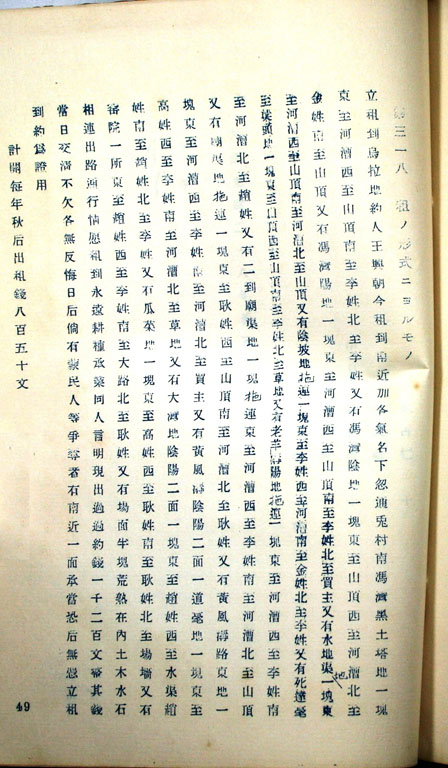 三一八 租ノ形式ニヨルモノ
立租到烏拉地約人王興朝今租到南近加各氣名下忽通兎村南馮灣黑土塔地一塊
東至河漕西至山頂南至李姓北至李姓又有馮灣陰地一塊東至山頂西至河漕北至
金姓南至山頂又有馮灣陽地一塊東至河漕西至山頂南至李姓北至買主又有水地渠一塊東
至河漕西至山頂北至山頂又有陰坡地拖連一塊東至李姓西至河漕南至金姓北至李姓又有死
地一塊東至山頂西至山頂南至李姓北至草地又有老羊 陽地拖連一塊東至河漕西至李姓南
至河漕北至趙姓又有二到廟渠地一塊拖連東至河漕西至李姓南至河漕北至山頂
又有 地拖連一塊東至耿姓西至山頂南至河漕北至耿姓又有黃風 路東地一
塊東至李姓西至李姓 至河漕北至買主又有黃風 陰陽二面一道 地一塊東至
高姓西至李姓南至河漕北至草地又有大灣地陰陽二面一塊東至趙姓西至水渠
姓南至趙姓北至李姓又有瓜菜地一塊東至高姓西至李姓南至耿姓北至場墻又有
院一所東至趙姓西至李姓南至大路北至耿姓又有場面半塊荒熟在內土木水石
相連出路通行情愿租到永遠耕種承業同人言明現出過約錢一千二百文 其錢
當日交清不欠各無反悔日后倘有蒙民人等爭奪者有南近一面承當恐后無憑立租
到約爲證用
計開每年秋后出租錢八百五十文
地
49